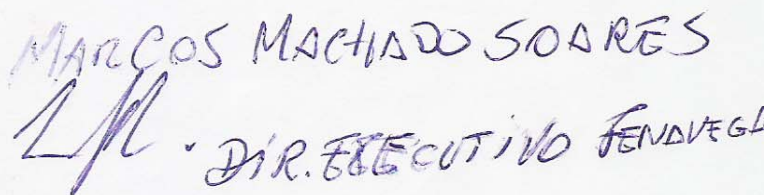 MARCOS MACHADO SOARES
. DIR. EXECUTIVO FENAVEGA